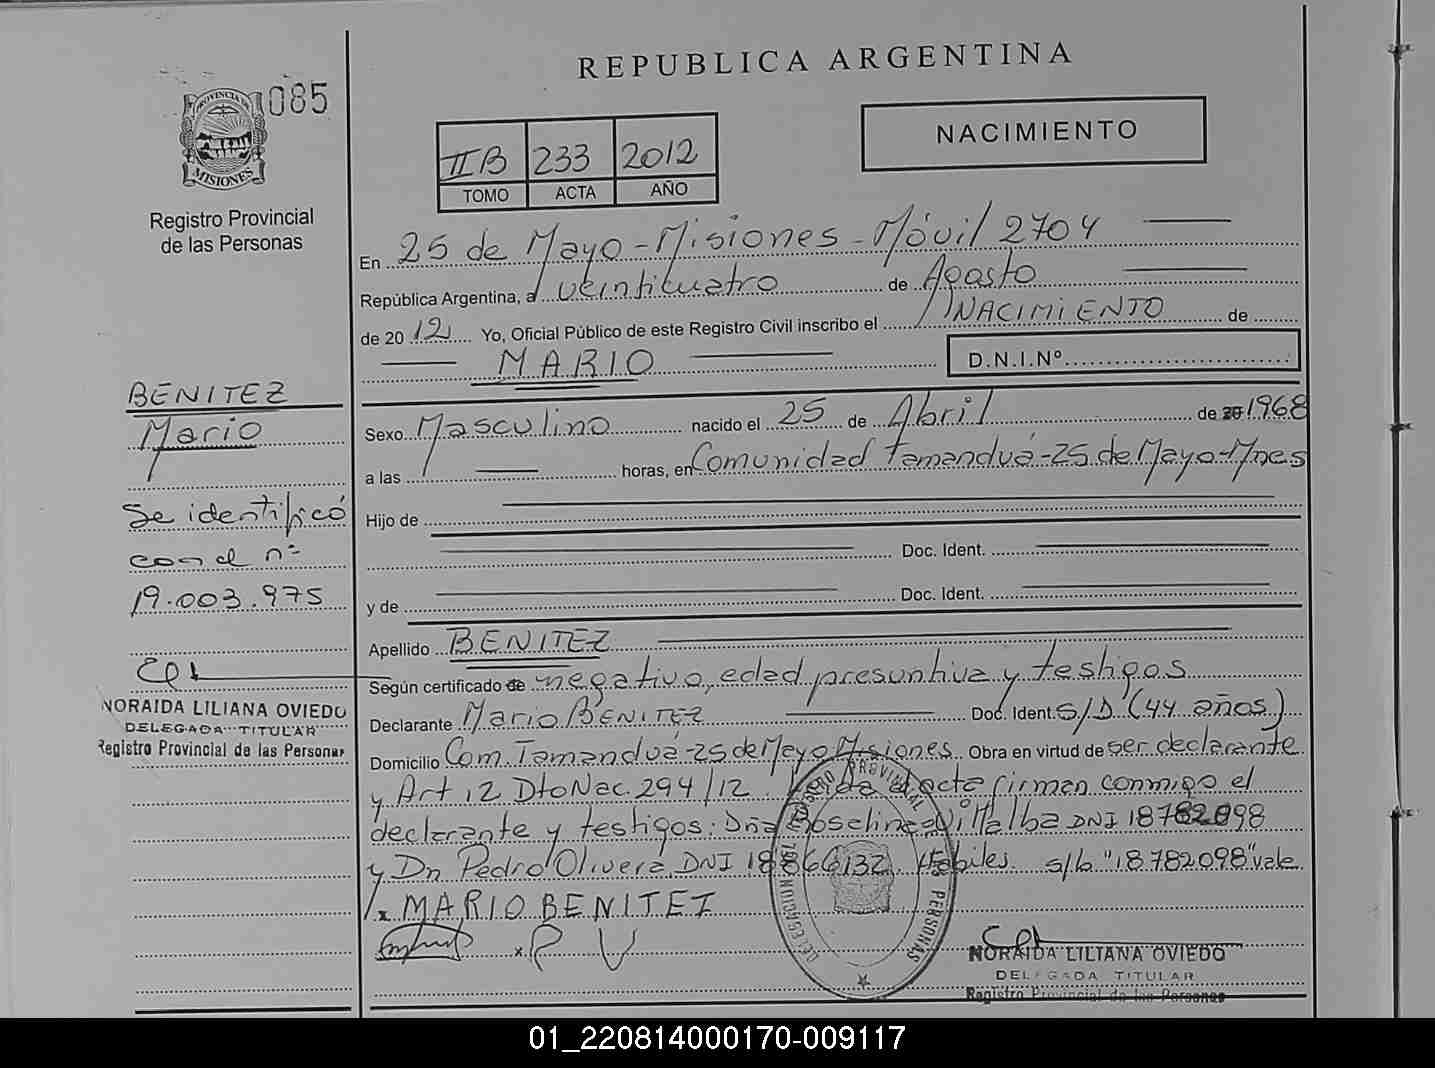 REPUBLICA ARGENTINA
085
PROVINCIA DE
MISIONES
Registro Provincial
de las Personas
II B 233 2012
TOMO ACTA AÑO
NACIMIENTO
En 25 de Mayo - Misiones - Móvil 2704
República Argentina, a veinticuatro de Agosto
de 2012 Yo, Oficial Público de este Registro Civil inscribo el NACIMIENTO de
MARIO D.N.I.Nº
BENITEZ
Mario
Se identificó
con el nº
19.003.975
NORAIDA LILIANA OVIEDO
DELEGADA TITULAR
Registro Provincial de las Personas
Sexo Masculino nacido el 25 de Abril de 1968
a las horas, en Comunidad Tamanduá - 25 de Mayo - Mnes
Hijo de
Doc. Ident.
y de Doc. Ident.
Apellido BENITEZ
Según certificado de negativo, edad presuntiva y testigos
Declarante Mario BENITEZ Doc. Ident. S/D (44 años)
Domicilio Com. Tamanduá - 25 de Mayo Misiones. Obra en virtud de ser declarante
y Art 12 Dto Nac. 294/12. Leída el acta firman conmigo el
declarante y testigos: Dña Villalba DNI 18782098
y Dn Pedro Olivera DNI 18866132 Hábiles. s/b "18782098" vale
x MARIO BENITEZ
x R V
REGISTRO PROVINCIAL DE LAS PERSONAS
NORAIDA LILIANA OVIEDO
DELEGADA TITULAR
Registro Provincial de las Personas
01_220814000170-009117